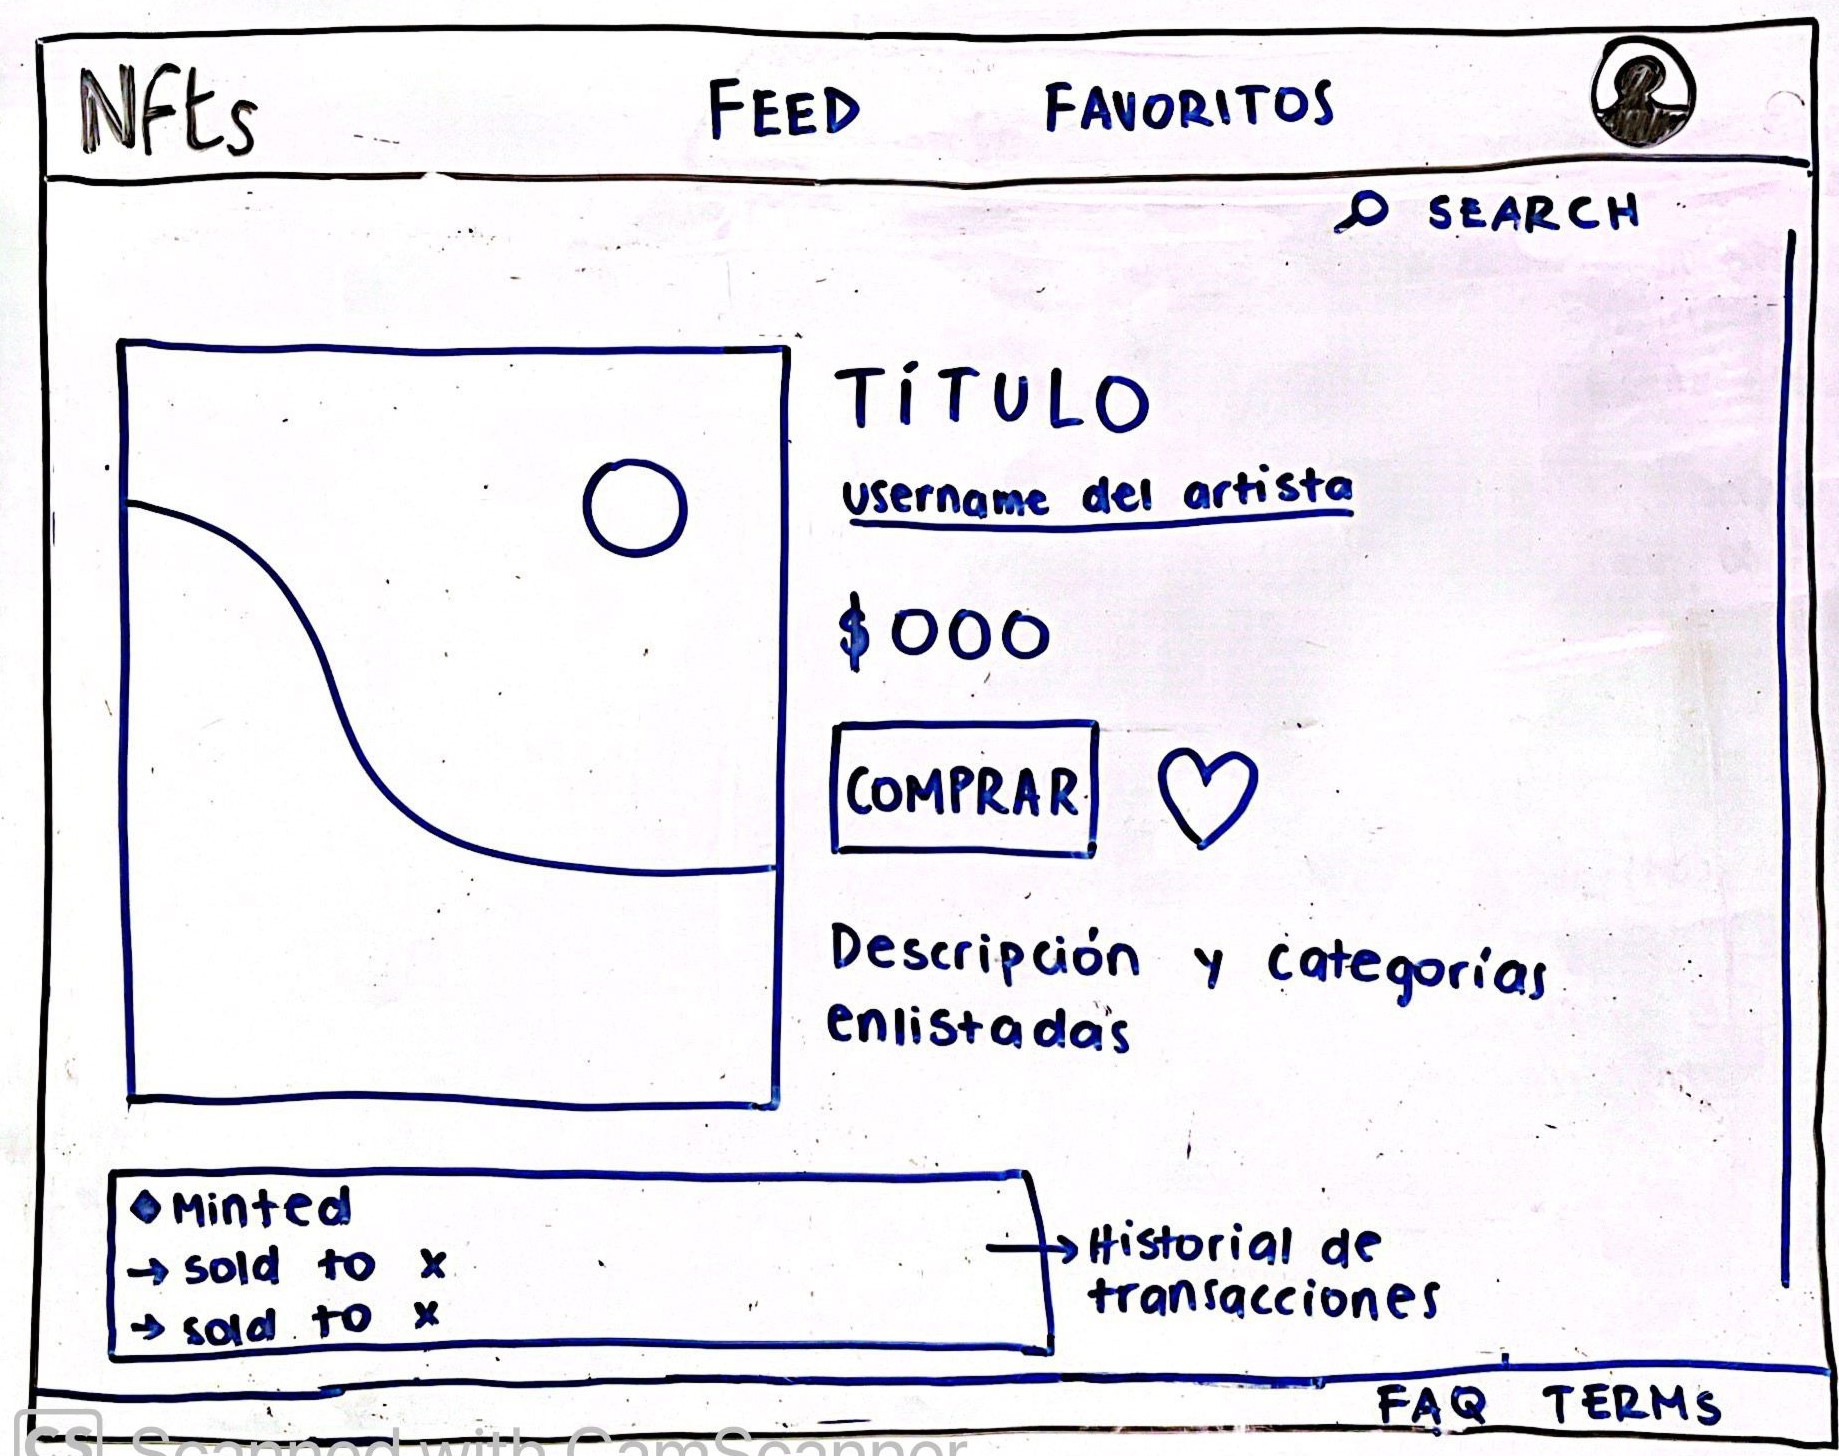 Nfts
FEED
FAVORITOS
SEARCH
TÍTULO
username del artista
$000
COMPRAR
Descripción y categorías
enlistadas
Minted
→ sold to x
→ sold to x
Historial de
transacciones
FAQ TERMS
CS Scanned with CamScanner